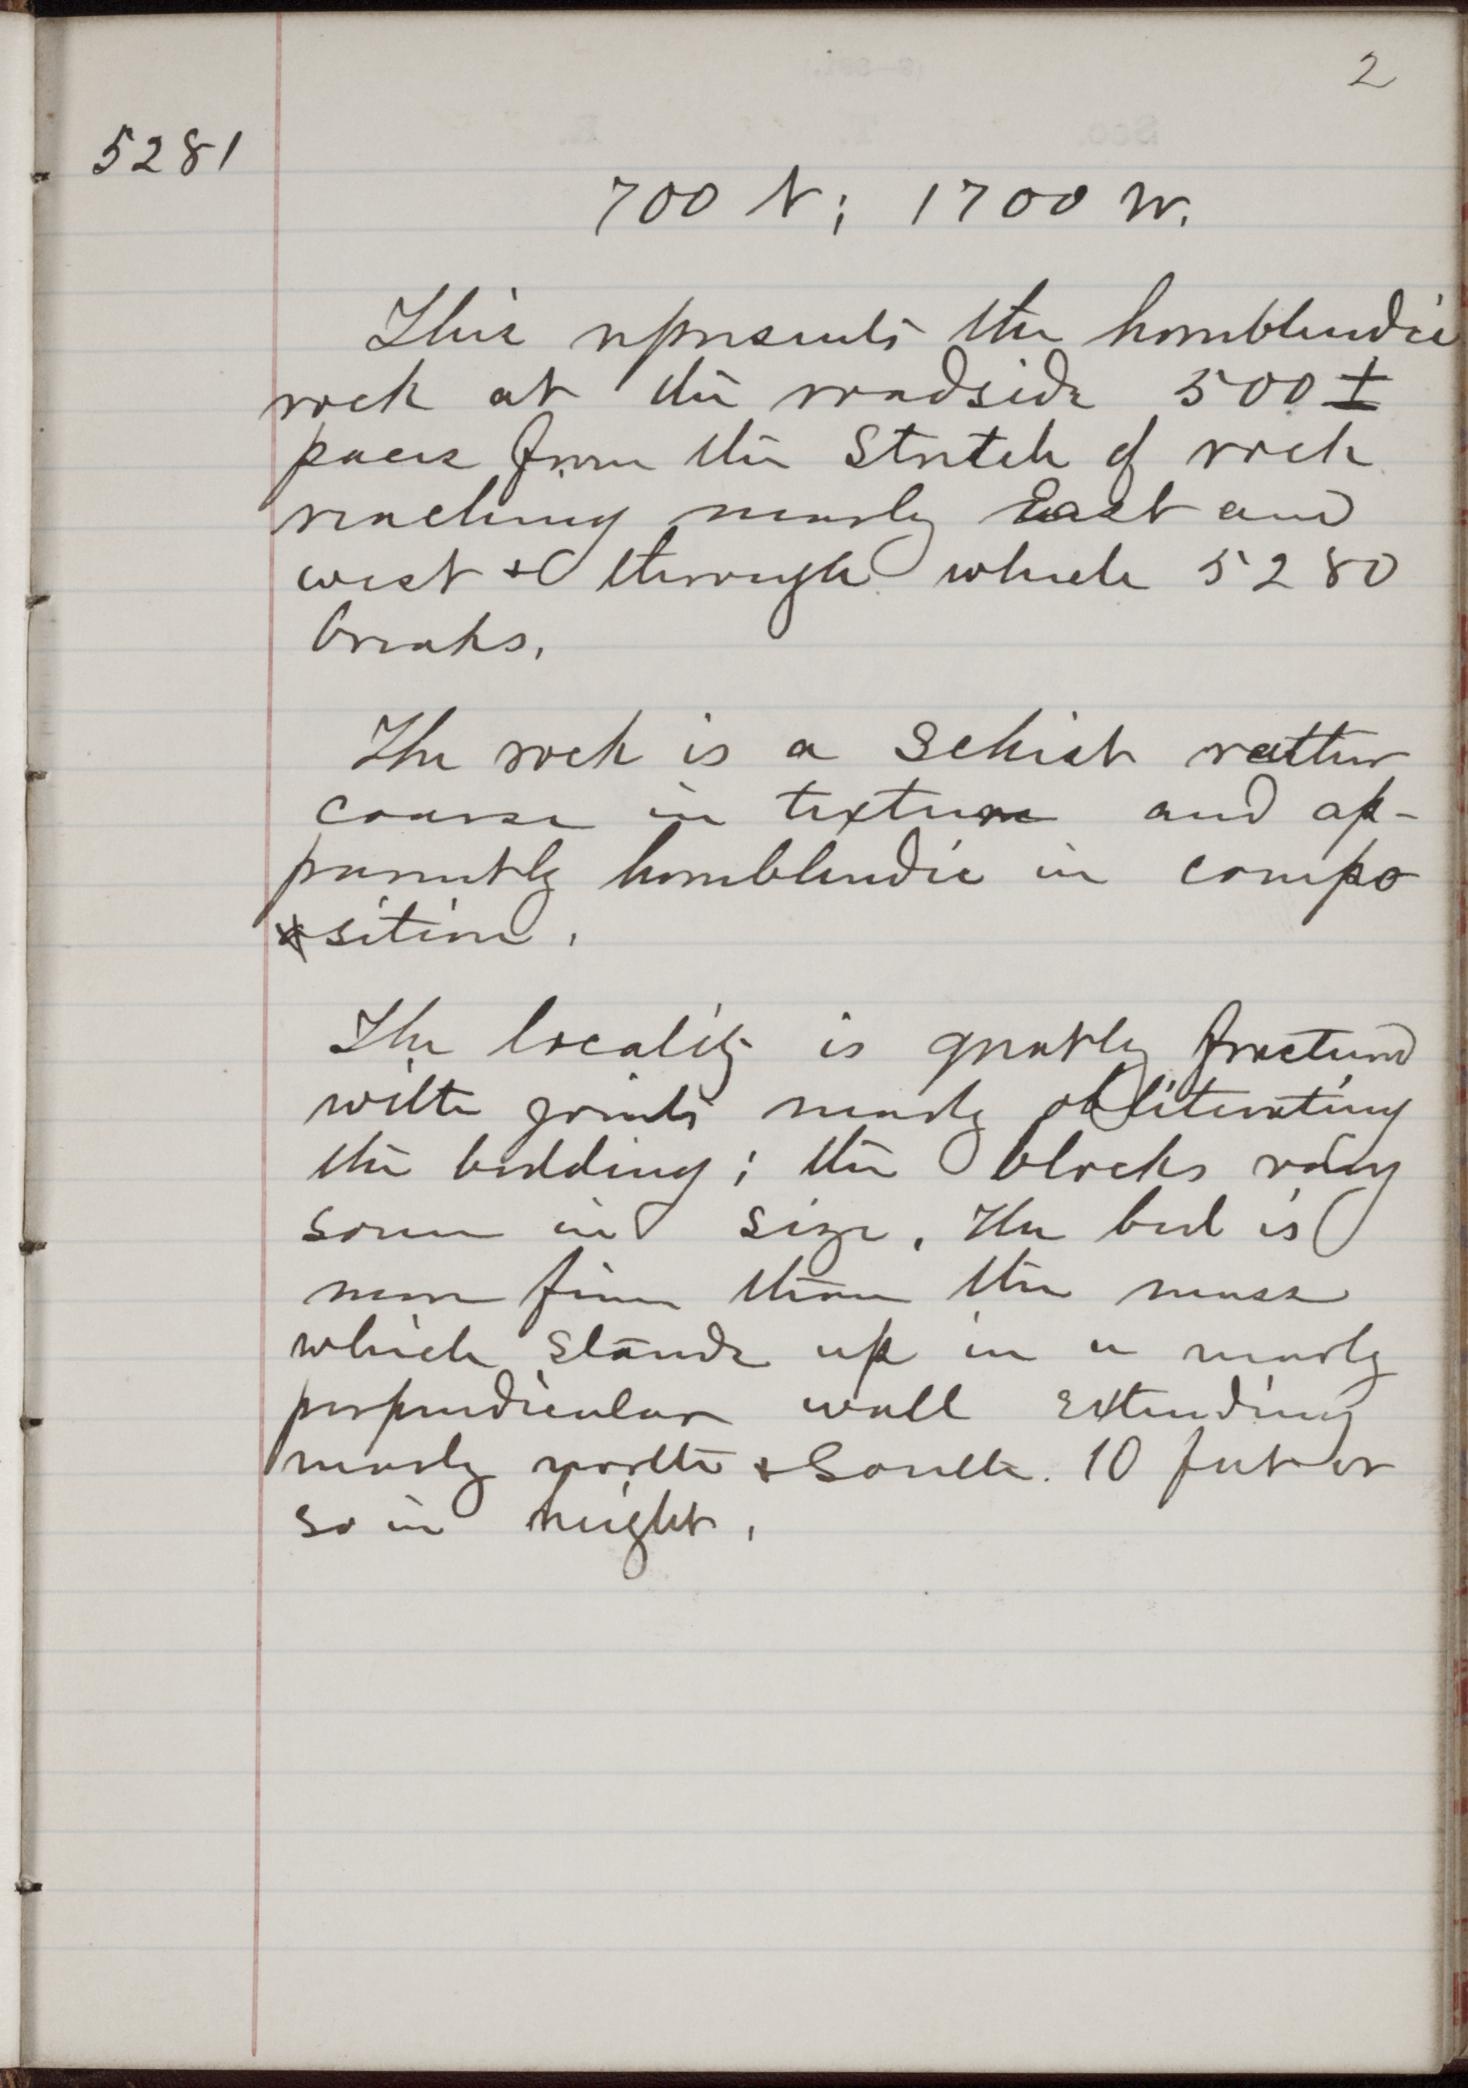 2
5281
700 N; 1700 W.
This represents the hornblendic
rock at the roadside 500 ±
paces from the stretch of rock
reaching nearly East and
west & through which 5280
breaks.
The rock is a Schist rather
coarse in texture and ap-
parently hornblendic in compo
sition.
The locality is greatly fractured
with joints nearly obliterating
the bedding; the blocks vary
some in size. The bed is
more firm than the mass
which stands up in a nearly
perpendicular wall extending
nearly north & South. 10 feet or
so in height.